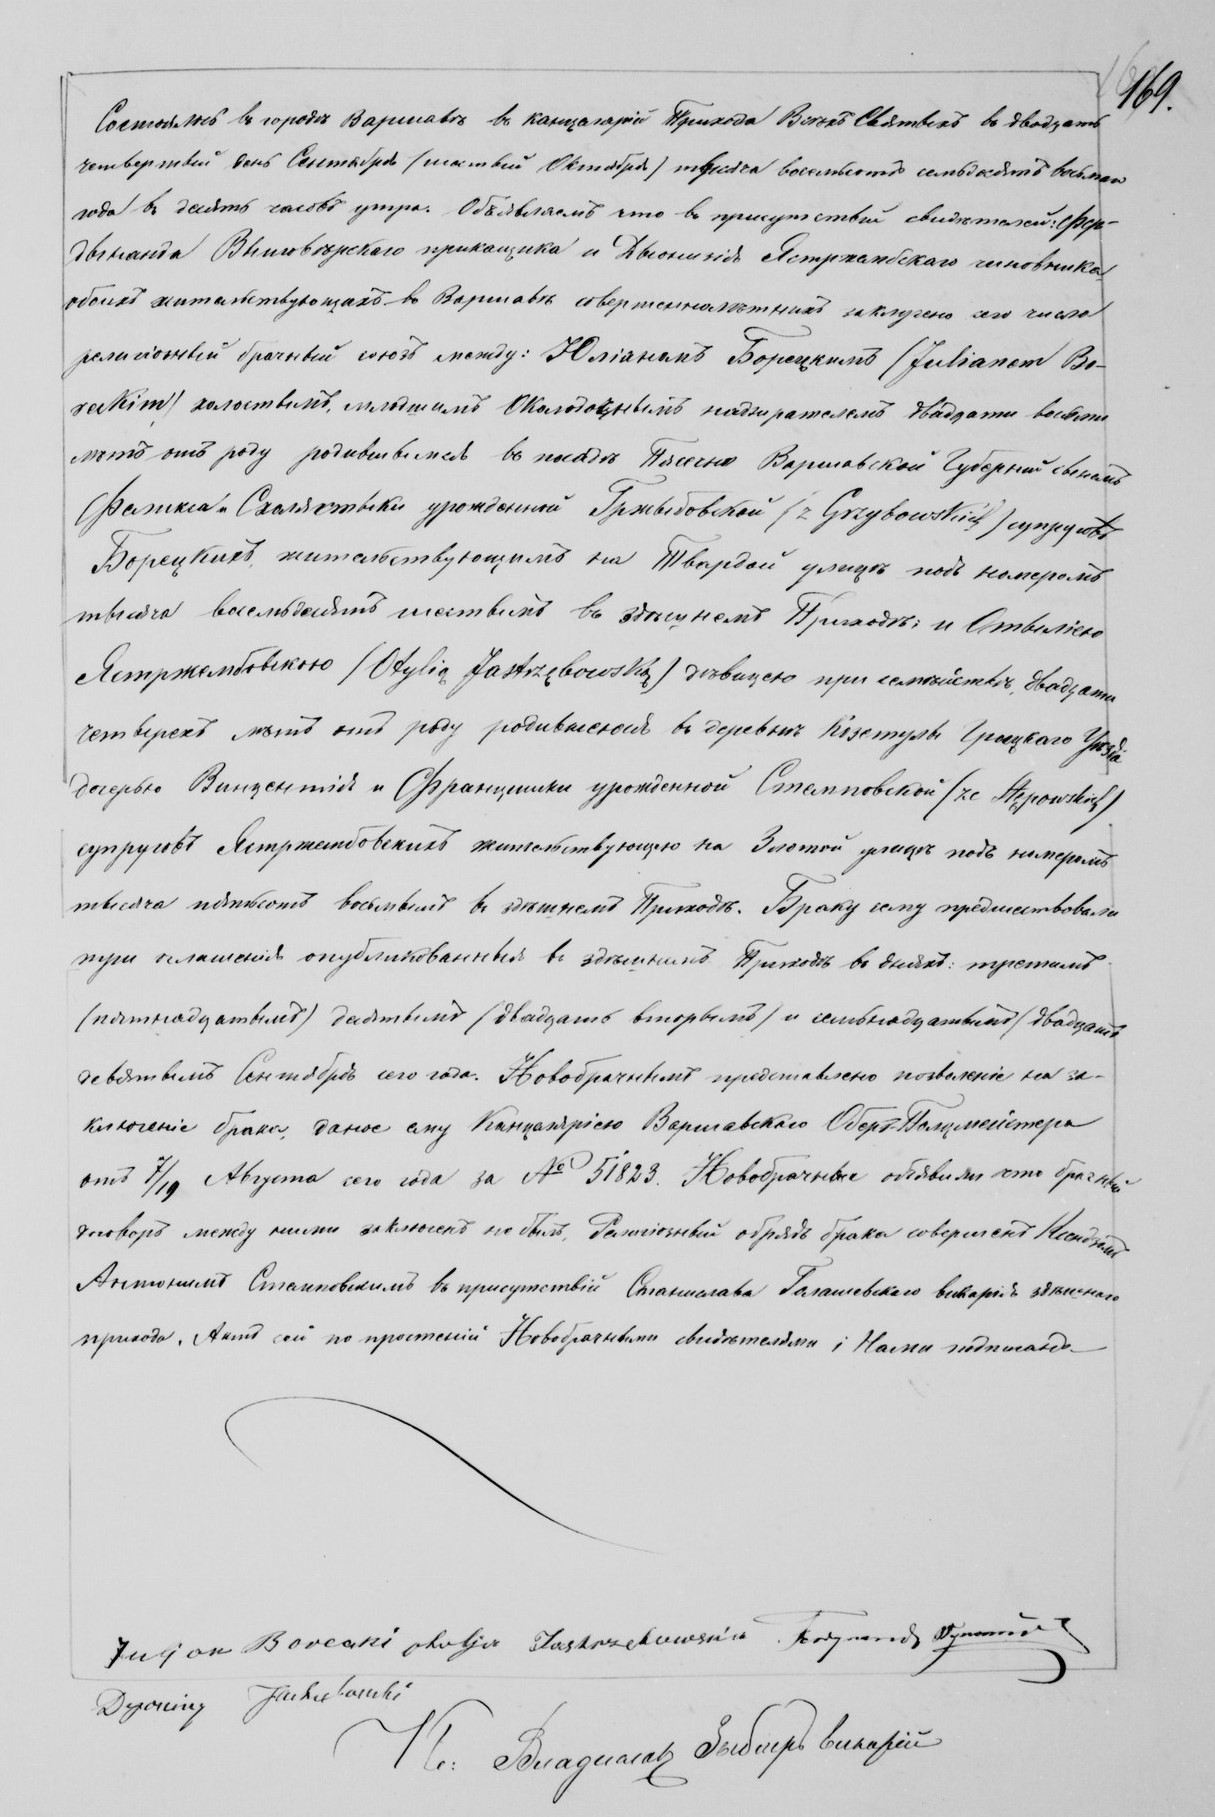 169.
Состоялось въ городѣ Варшавѣ въ канцеляріи Прихода Всѣхъ Святыхъ въ двадцать
четвертый день Сентября (шестый Октября) тысяча восемьсотъ семьдесятъ восьмаго
года въ десять часовъ утра. Объявляемъ что въ присутствіи свидѣтелей: Фер-
дынанда прикащика и Діонизія Ястржембскаго чиновника
обоихъ жительствующихъ въ Варшавѣ совершеннолѣтнихъ заключенъ сего числа
религіозный брачный союзъ между: Юліаномъ Борецкимъ (Julianem Bo-
reckim) холостымъ, младшимъ Околодочнымъ надзирателемъ двадцати восьми
лѣтъ отъ роду родившимся въ посадѣ Пясечно Варшавской Губерніи сыномъ
Феликса и Схоластыки урожденной Гржыбовской (z Grzybowskich) супруговъ
Борецкихъ, жительствующимъ на Твардой улицѣ подъ номеромъ
тысяча восемьдесятъ шестымъ въ здѣшнемъ Приходѣ; и Отыліею
Ястржембовскою (Otylią Jastrzębowską) дѣвицею при семействѣ, двадцати
четырехъ лѣтъ отъ роду родившеюся въ деревнѣ Гроецкаго Уѣзда
дочерью Винцентія и Францишки урожденной Стемповской (ze Stępowskich)
супруговъ Ястржембовскихъ жительствующею на Злотой улицѣ подъ номеромъ
тысяча пятьсотъ восьмымъ въ здѣшнемъ Приходѣ. Браку сему предшествовали
три оглашенія опубликованныя въ здѣшнемъ Приходѣ во дняхъ: третьемъ
(пятнадцатымъ) десятымъ (двадцать вторымъ) и семьнадцатымъ (двадцать
девятымъ Сентября сего года. Новобрачнымъ представлено позволеніе на за-
ключеніе брака, даное ему Канцеляріею Варшавскаго Оберъ-Полицмейстера
отъ 7/19 Августа сего года за № 51823. Новобрачные объявили что брачный
договоръ между ними заключенъ не былъ. Религіозный обрядъ брака совершенъ Ксендзомъ
Антонимъ Стемповскимъ въ присутствіи Станислава викарія здѣшняго
прихода. Актъ сей по прочтеніи Новобрачными свидѣтелями і Нами подписанъ
Juljan Borecki Otylja Jastrzębowska Ferdynand
Dyonizy Jastrzębowski
Кс: Владиславъ викарій